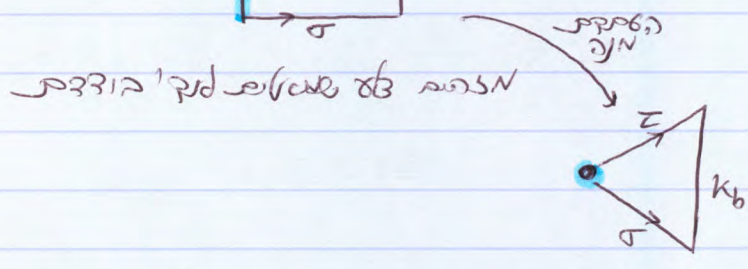 σ
העתקת
מנה
מזהים צלע שמאלית לנק' בודדת
τ
K_b
σ